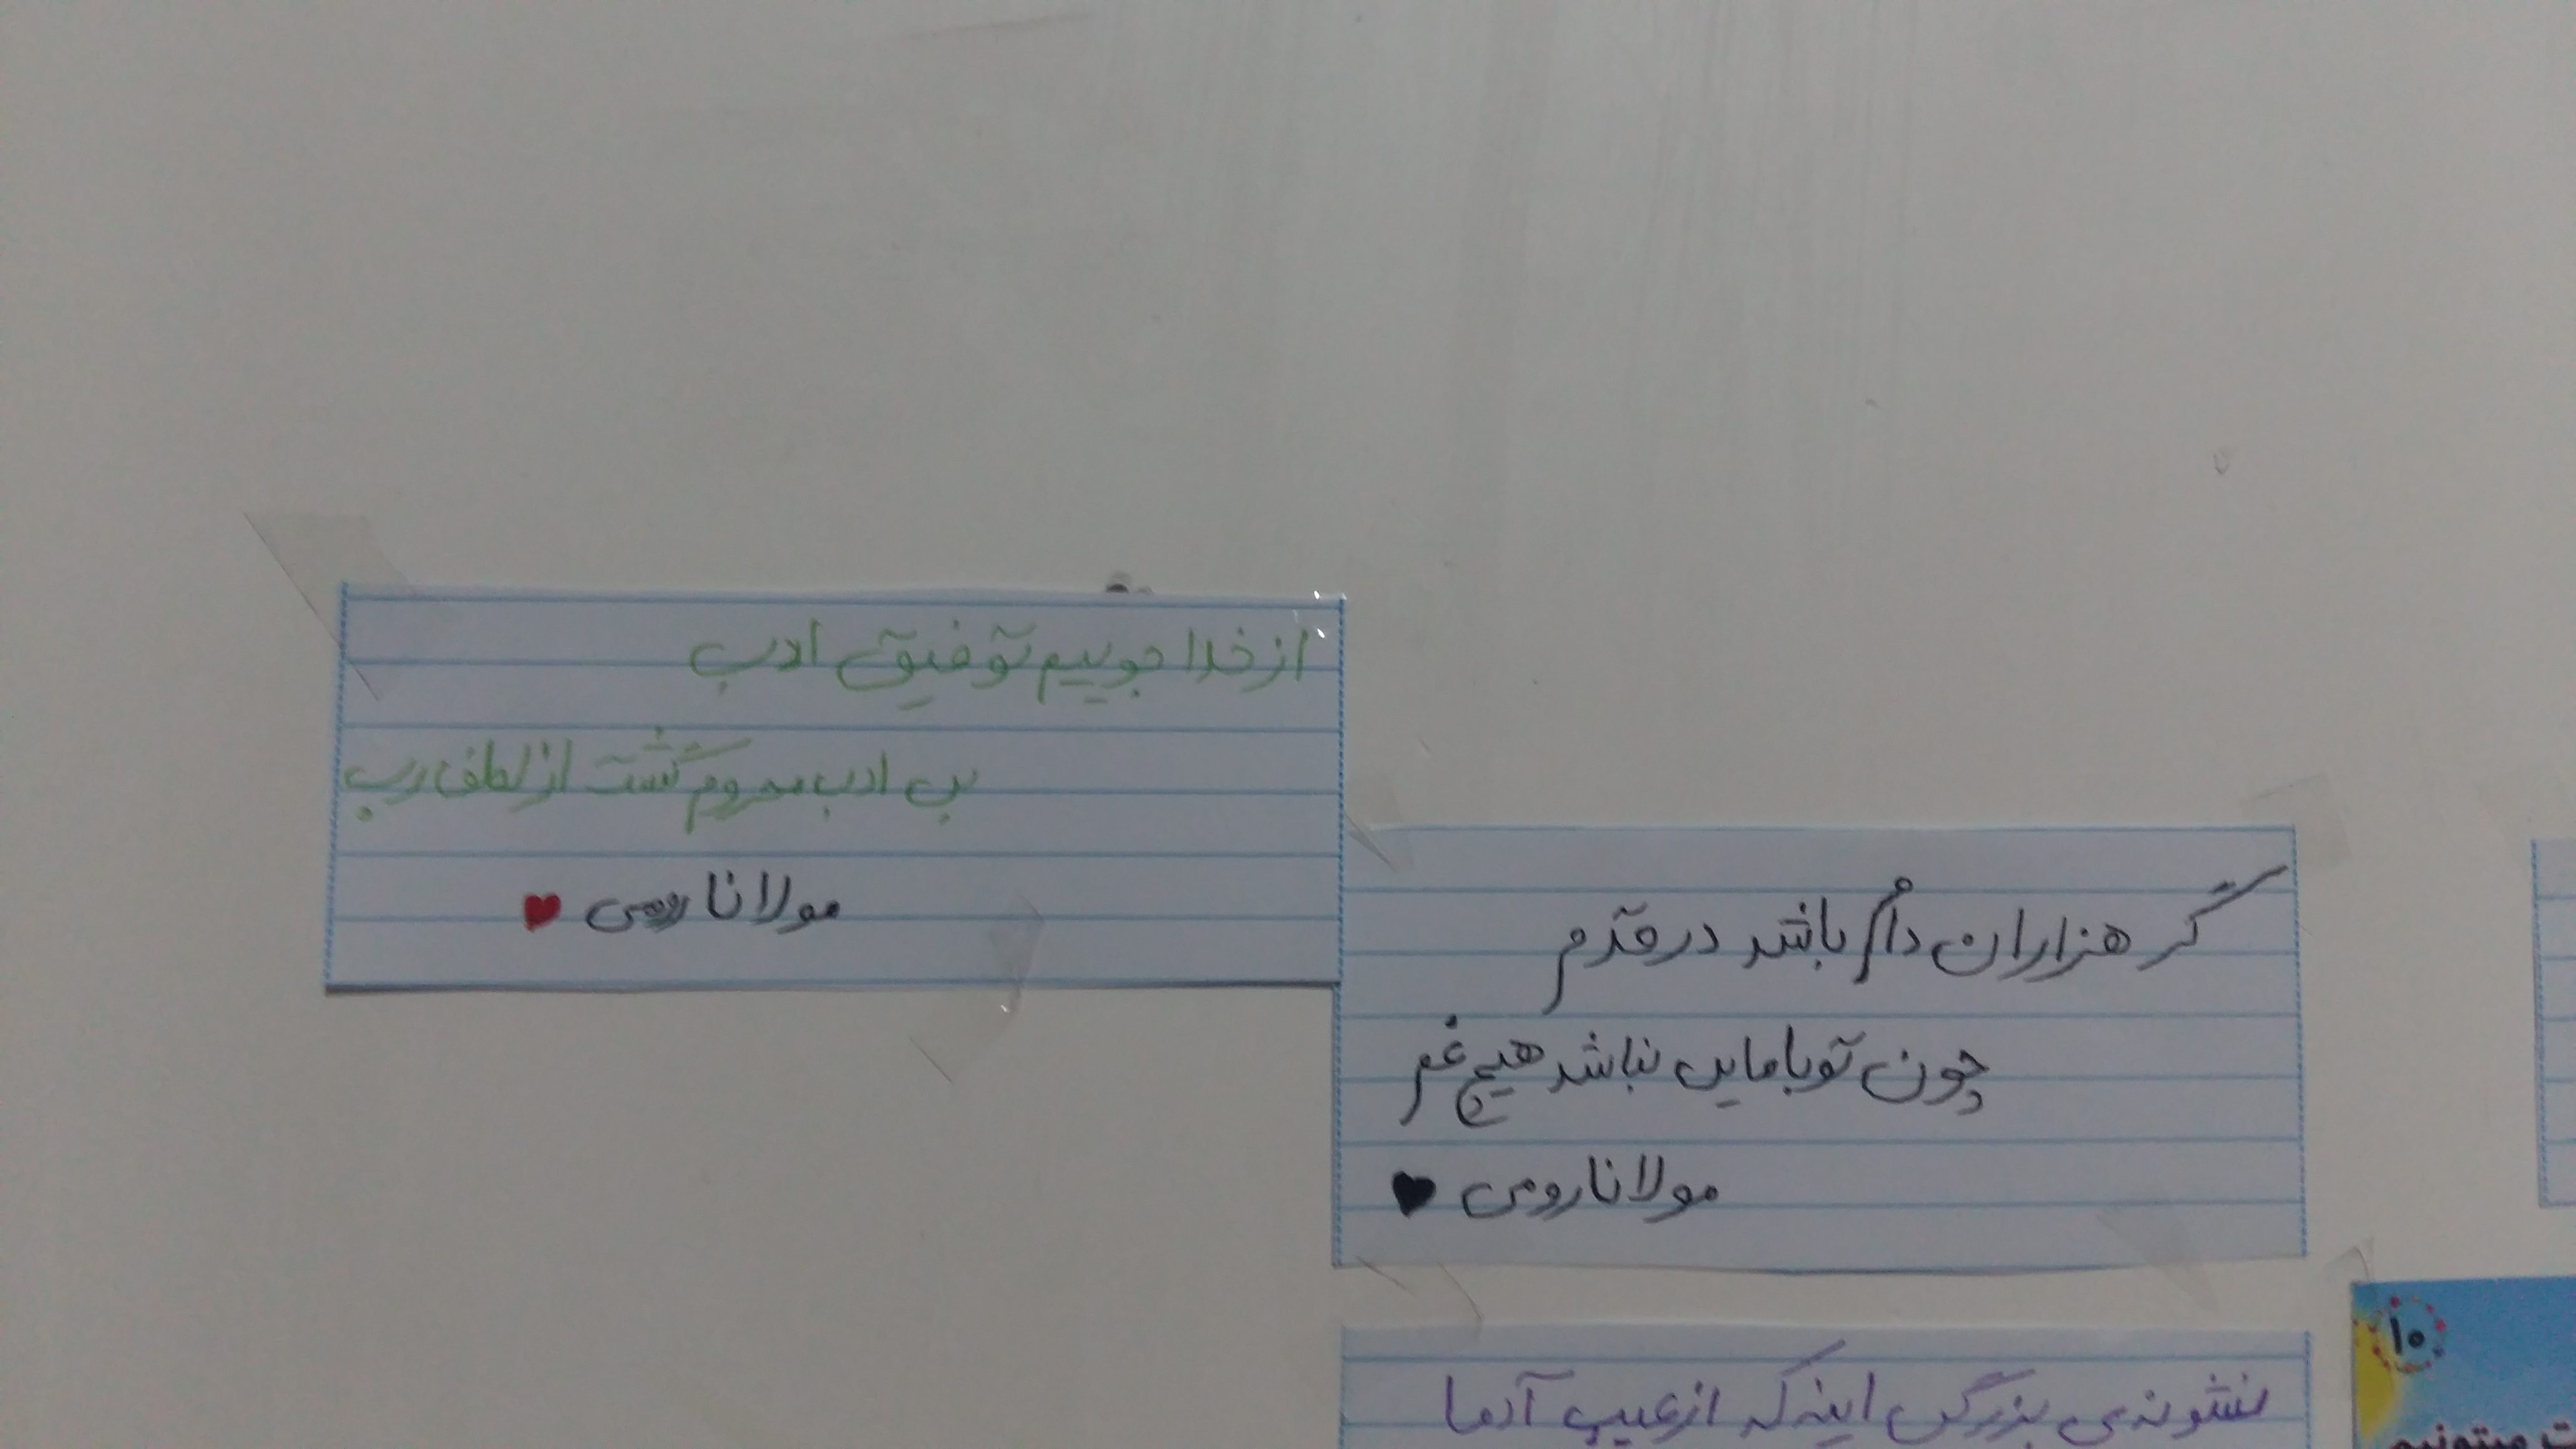 از خدا جوییم توفیق ادب
بی ادب محروم گشت از لطف رب
مولانا رومی ♥
گر هزاران دام باشد در قدم
چون تو با مایی نباشد هیچ غم
مولانا رومی ♥
نشونه‌ی بزرگی اینه که از عیب آدما
۱۰